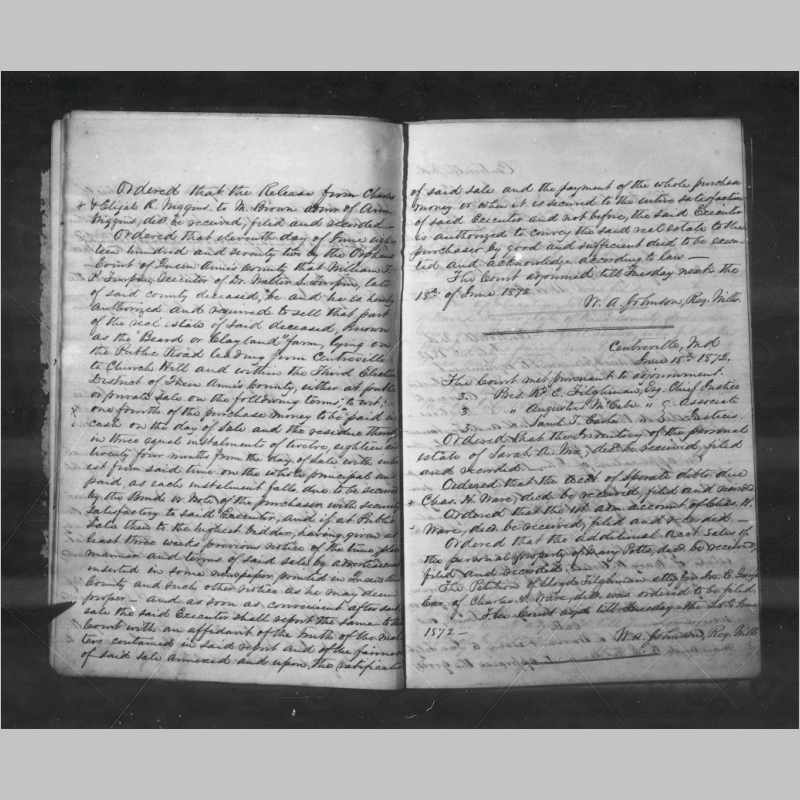 Ordered that the Release from Charles
& Elijah R. Wiggins to M. Brown admr of Ann
Wiggins, decd be received, filed and recorded
Ordered that eleventh day of June eigh-
teen hundred and seventy two by the Orphans
Court of Queen Ann's County that William T.
P. Turpin, Executor of Dr. Walter S. Turpin, late
of said county deceased, be and he is hereby
authorized and required to sell that part
of the real estate of said deceased, known
as the "Beard or Clayland" farm, lying on
the Public Road leading from Centreville
to Church Hill and within the Third Election
District of Queen Ann's County, either at public
or private sale on the following terms, to wit;
one fourth of the purchase money to be paid in
cash on the day of sale and the residue thereof
in three equal instalments of twelve, eighteen and
twenty four months from the day of sale with inter
est from said time on the whole principal unpaid
paid as each instalment falls due to be secured
by the Bonds or Notes of the purchaser with security
satisfactory to said Executor, and if at Public
Sale then to the highest bidder, having given at
least three weeks previous notice of the time, place
manner and terms of said sale by advertisement
inserted in some newspaper, printed in Queen Ann's
County and such other notice as he may deem
proper — and as soon as convenient after said
sale the said Executor shall report the same to the
Court with an affidavit of the truth of the mat
ters contained in said report and of the fairness
of said sale annexed and upon the ratification
of said sale and the payment of the whole purchase
money or when it is secured to the entire satisfaction
of said Executor and not before, the said Executor
is authorized to convey the said real estate to the
purchaser by good and sufficient deed to be execu
ted and acknowledge according to law —
The Court adjourned till Tuesday next the
18th of June 1872
W. A. Johnson, Reg. Wills.
Centreville, Md
June 18th 1872.
The Court met pursuant to adjournment.
Pres. Wm C. Tilghman, Esq. Chief Justice
" Augustus M. " & Associate
" Saml T. Justices
Ordered that the Inventory of the personal
estate of Sarah A. decd be received, filed
and recorded.
Ordered that the acct of Sperate debts due
Chas. H. Ware, decd be received, filed and recorded
Ordered that the 1st adm account of Chas. H.
Ware, decd be received, filed and recorded —
Ordered that the additional acct Sales of
the personal property of Mary Potts, decd be received,
filed and recorded.
The Petition of Lloyd Tilghman atty for
of Charles H. Ware, decd was ordered to be filed.
The Court adjd till Tuesday the June
1872 —
W. A. Johnson, Reg. Wills